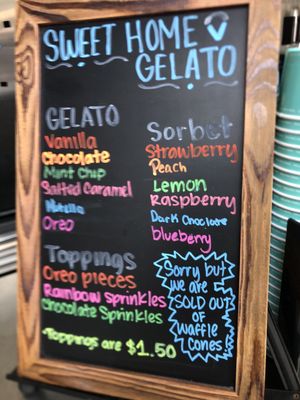 SWEET HOME
GELATO
GELATO
Vanilla
Chocolate
Mint Chip
Salted Caramel
Nutella
Oreo
Sorbet
Strawberry
Peach
Lemon
Raspberry
Dark Choclate
blueberry
Toppings
Oreo pieces
Rainbow Sprinkles
Chocolate Sprinkles
Toppings are $1.50
Sorry but
we are
SOLD OUT
OF
WAFFLE
CONES